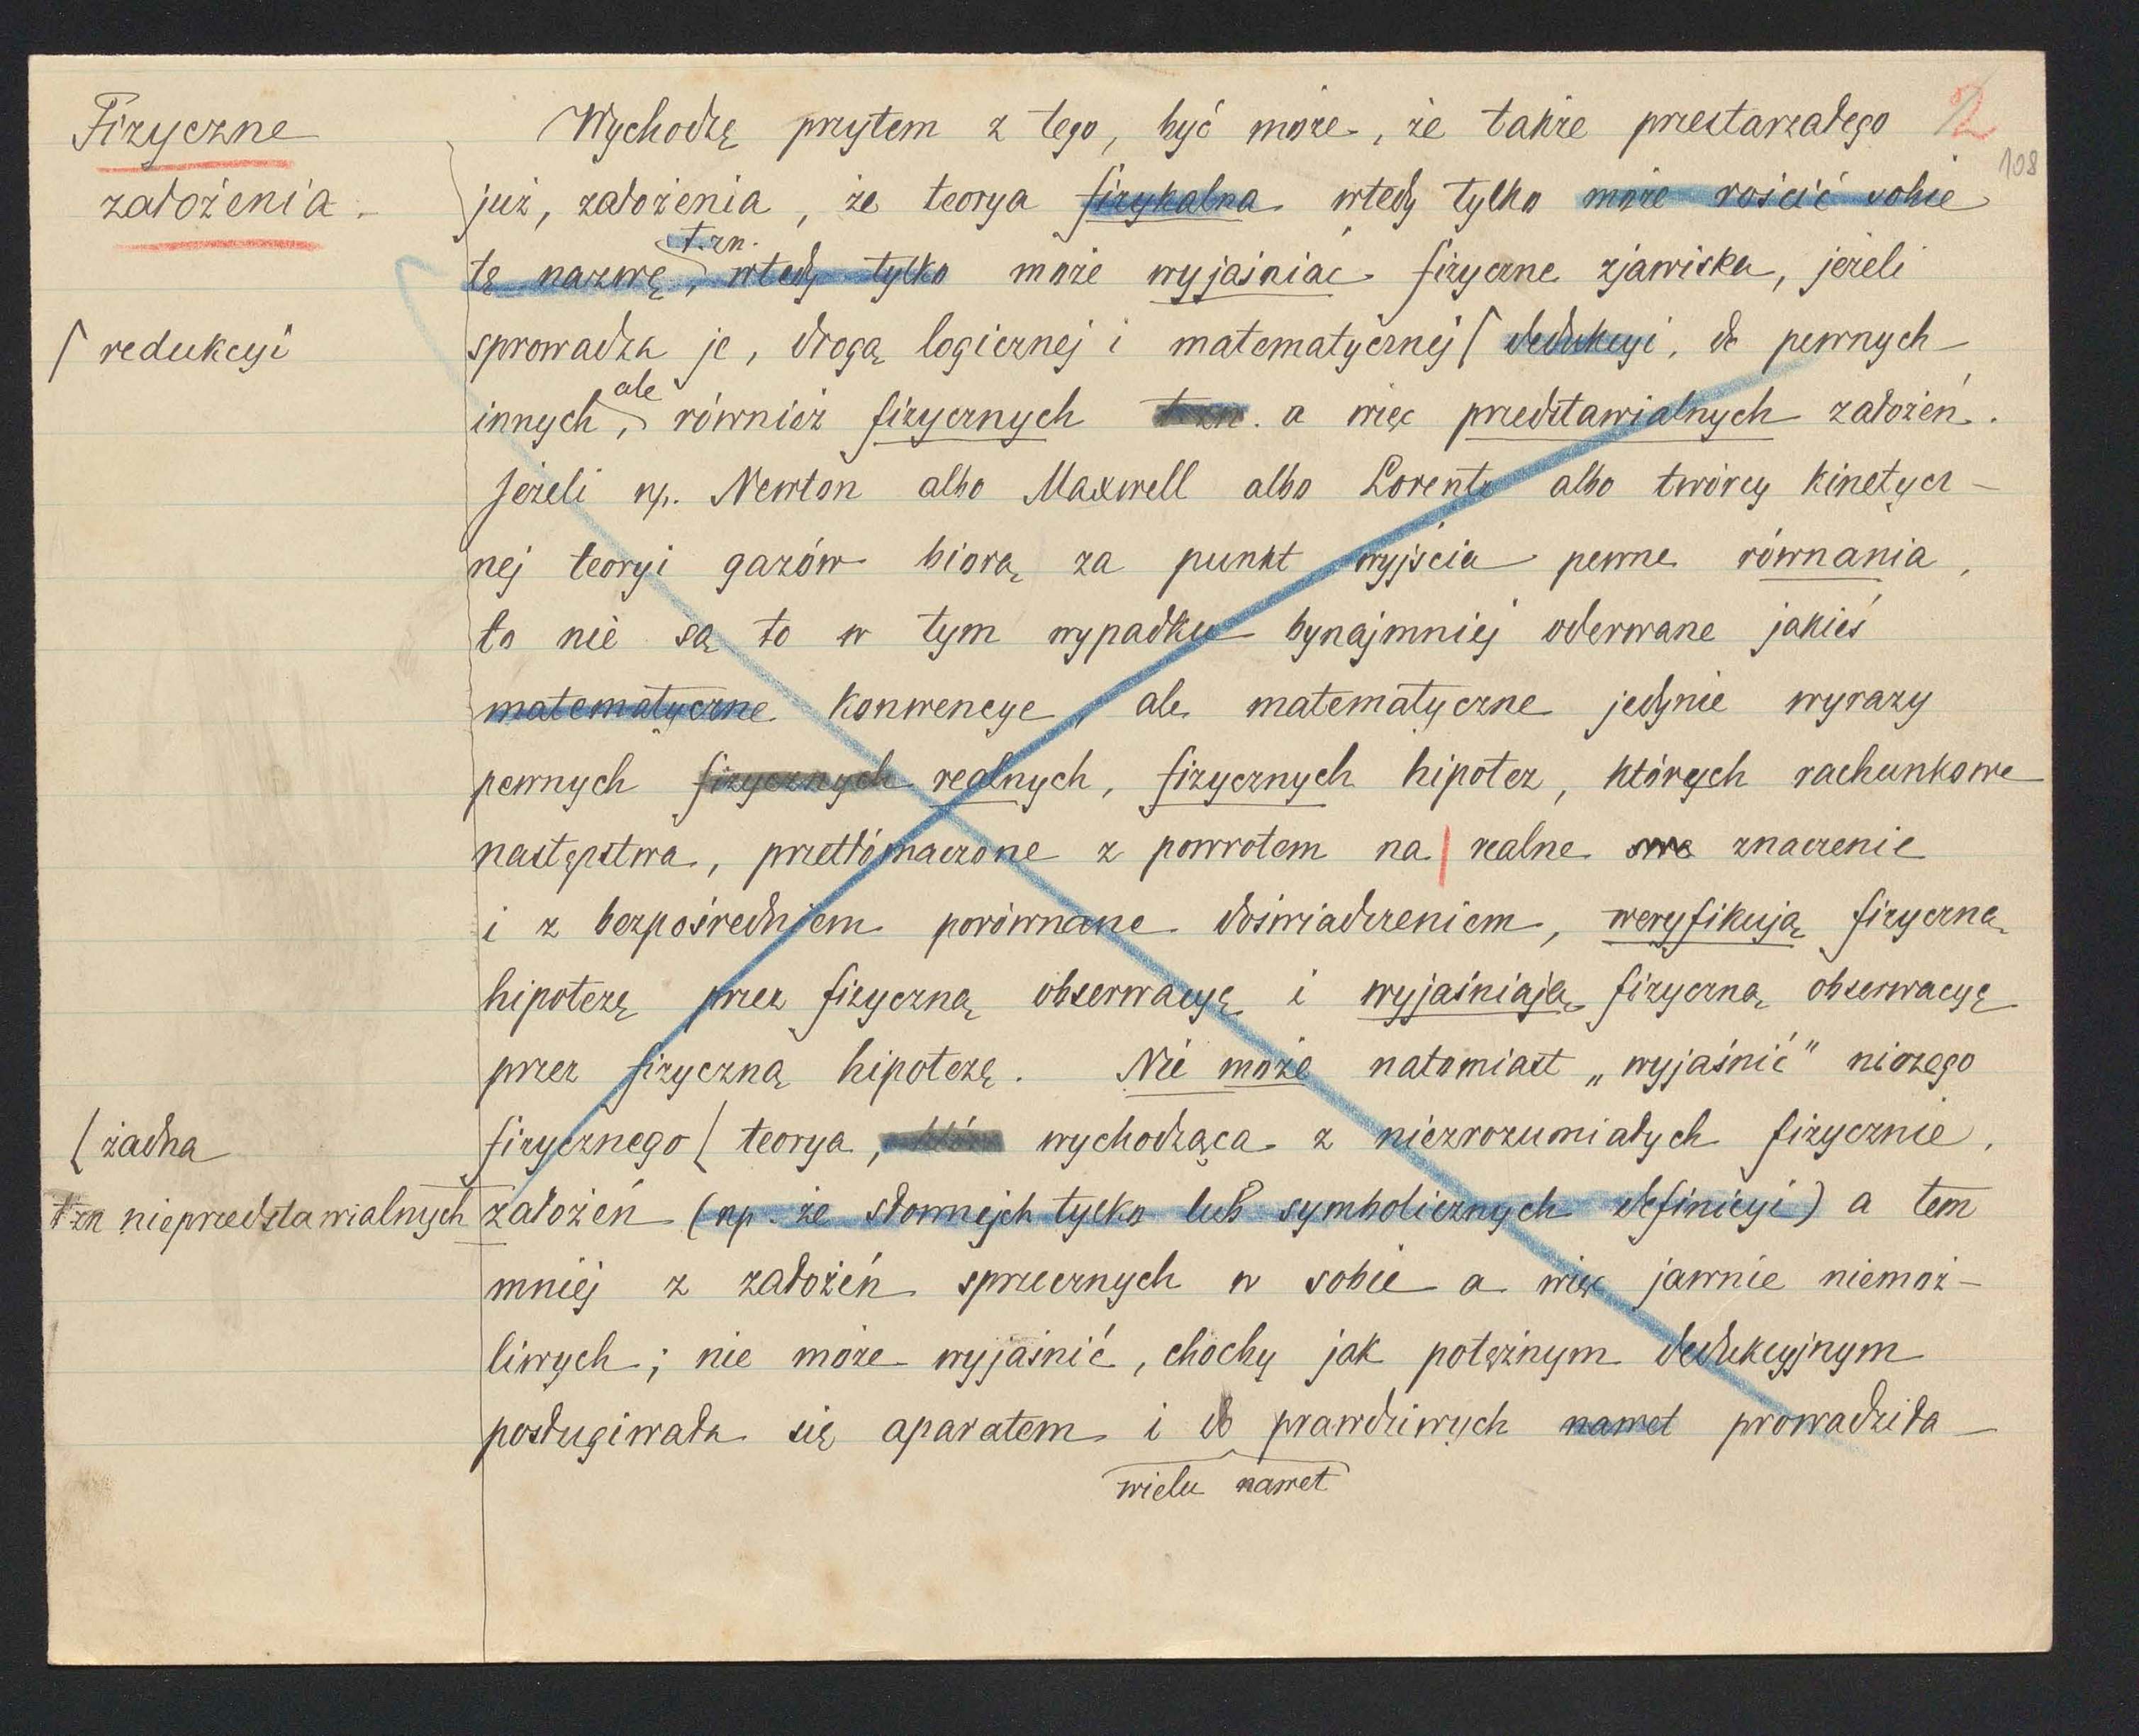 2
108
Fizyczne
założenia.
Wychodzę przytem z tego, być może, że także przestarzałego
już, założenia, że teorya fizykalna wtedy tylko może rościć sobie
t.zn.
tę nazwę, wtedy tylko może wyjaśniać fizyczne zjawiska, jeżeli
⌈ redukcyi
sprowadza je, drogą logicznej i matematycznej ⌈ dedukcyi, do pewnych
ale
innych, również fizycznych t.zn. a więc przedstawialnych założeń.
Jeżeli np. Newton albo Maxwell albo Lorentz albo twórcy kinetycz-
nej teoryi gazów biorą za punkt wyjścia pewne równania,
to nie są to w tym wypadku bynajmniej oderwane jakieś
matematyczne konwencye, ale matematyczne jedynie wyrazy
pewnych fizycznych realnych, fizycznych hipotez, których rachunkowe
następstwa, przetłómaczone z powrotem na | realne swe znaczenie
i z bezpośredniem porównane doświadczeniem, weryfikują fizyczną
hipotezę przez fizyczną obserwacyę i wyjaśniają fizyczną obserwacyę
przez fizyczną hipotezę. Nie może natomiast „wyjaśnić" niczego
⌊ żadna
fizycznego ⌊ teorya, która wychodząca z niezrozumiałych fizycznie,
tzn nieprzedstawialnych
założeń (np. ze słownych tylko lub symbolicznych definicyi) a tem
mniej z założeń sprzecznych w sobie a więc jawnie niemoż-
liwych; nie może wyjaśnić, choćby jak potężnym dedukcyjnym
posługiwała się aparatem i do prawdziwych nawet prowadziła
wielu nawet